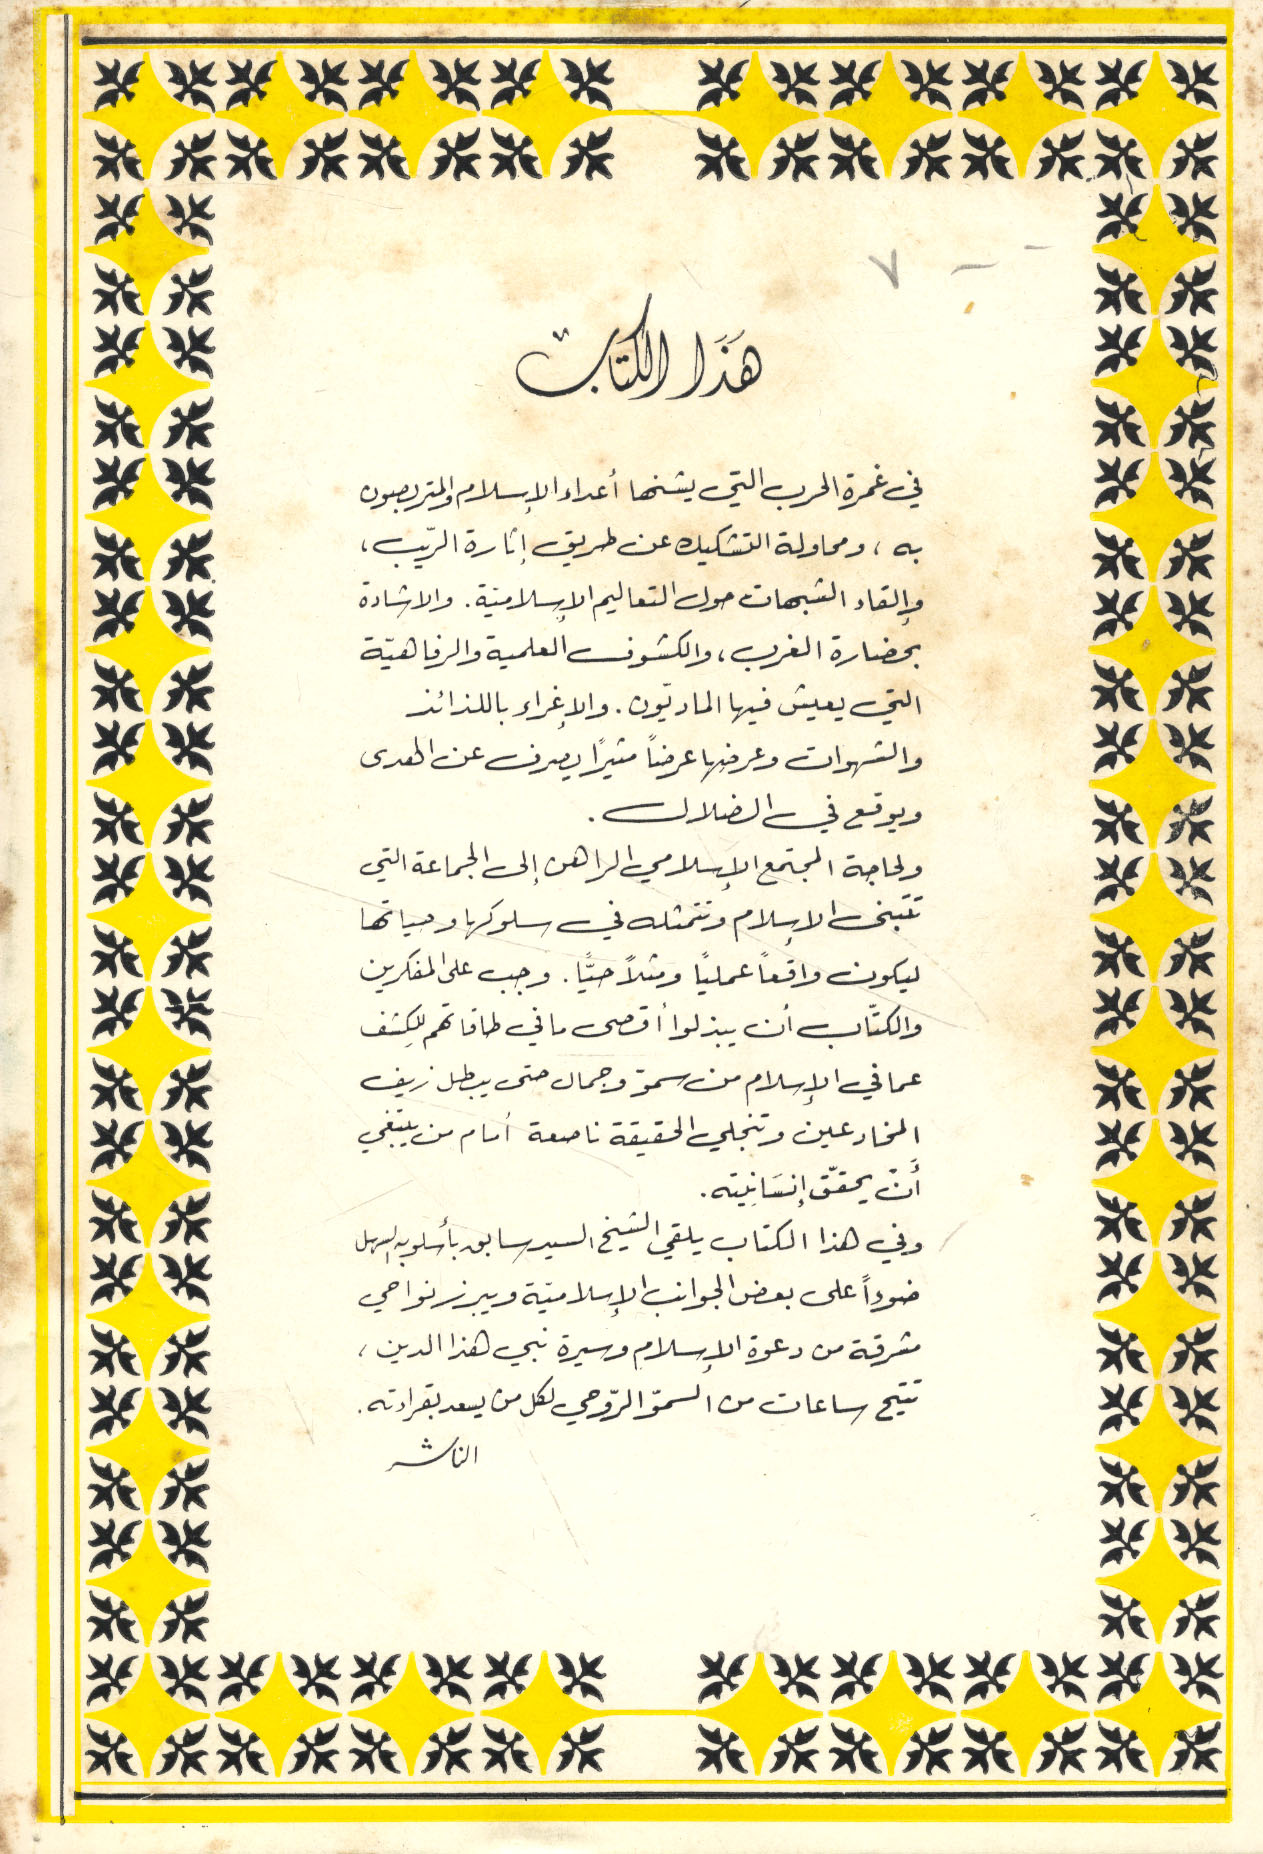 هَذَا الكتَاب
في غمرة الحرب التي يشنها أعداء الإسلام والمتربصون
به ، ومحاولة التشكيك عن طريق إثارة الرّيب ،
وإلقاء الشبهات حول التعاليم الإسلاميّة . والاشادة
بحضارة الغرب ، والكشوف العلمية والرفاهيّة
التي يعيش فيها الماديّون . والإغراء باللذائذ
والشهوات وعرضها عرضاً مثيرًا يصرف عن الهدى
ويوقع في الضلال .
ولحاجة المجتمع الإسلامي الراهن إلى الجماعة التي
تتبنى الإسلام وتتمثله في سلوكها وحياتها
ليكون واقعاً عمليًا ومثلاً حيًّا . وجب على المفكرين
والكتّاب أن يبذلوا أقصى ما في طاقاتهم للكشف
عما في الإسلام من سموّ وجمال حتى يبطل زيف
المخادعين وتنجلي الحقيقة ناصعة أمام من يبتغي
أَنْ يحقّق إنسَانيته .
وفي هذا الكتاب يلقي الشيخ السيد سابق بأسلوبه السهل
ضوءاً على بعض الجوانب الإسلاميّة ويبرز نواحي
مشرقة من دعوة الإسلام وسيرة نبي هذا الدين ،
تتيح ساعات من السموّ الرّوحي لكل من يسعد بقراءته .
الناشر